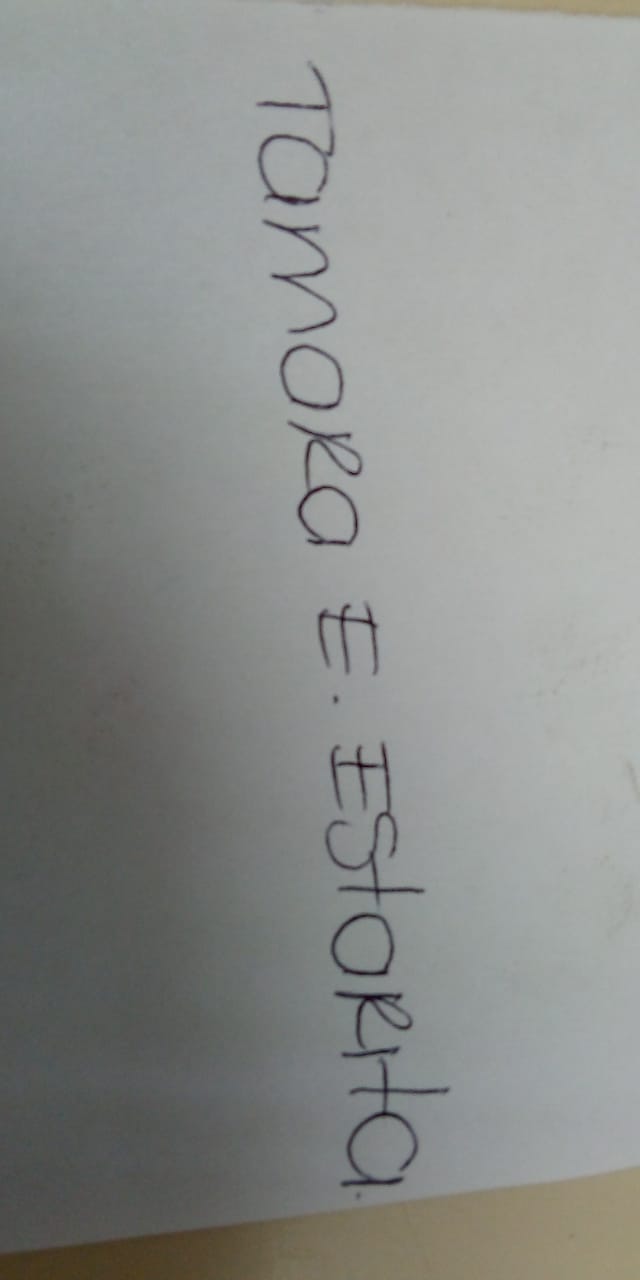 Tamora E. Estorita.